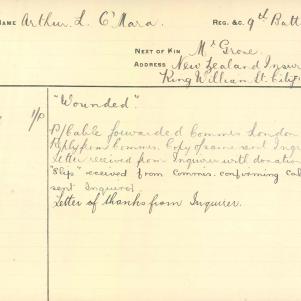 NAME Arthur L. O'Mara. REG. &C. 9th Batt
NEXT OF KIN Mr Grose
ADDRESS New Zealand Insur
King William St. City
I/p "Wounded".
P/Cable forwarded Commis. London
Reply from Commis. Copy of same sent Inqr
Letter received from Inquirer with donation
"Slip" received from Commis. confirming cab
sent Inquirer.
Letter of thanks from Inquirer.